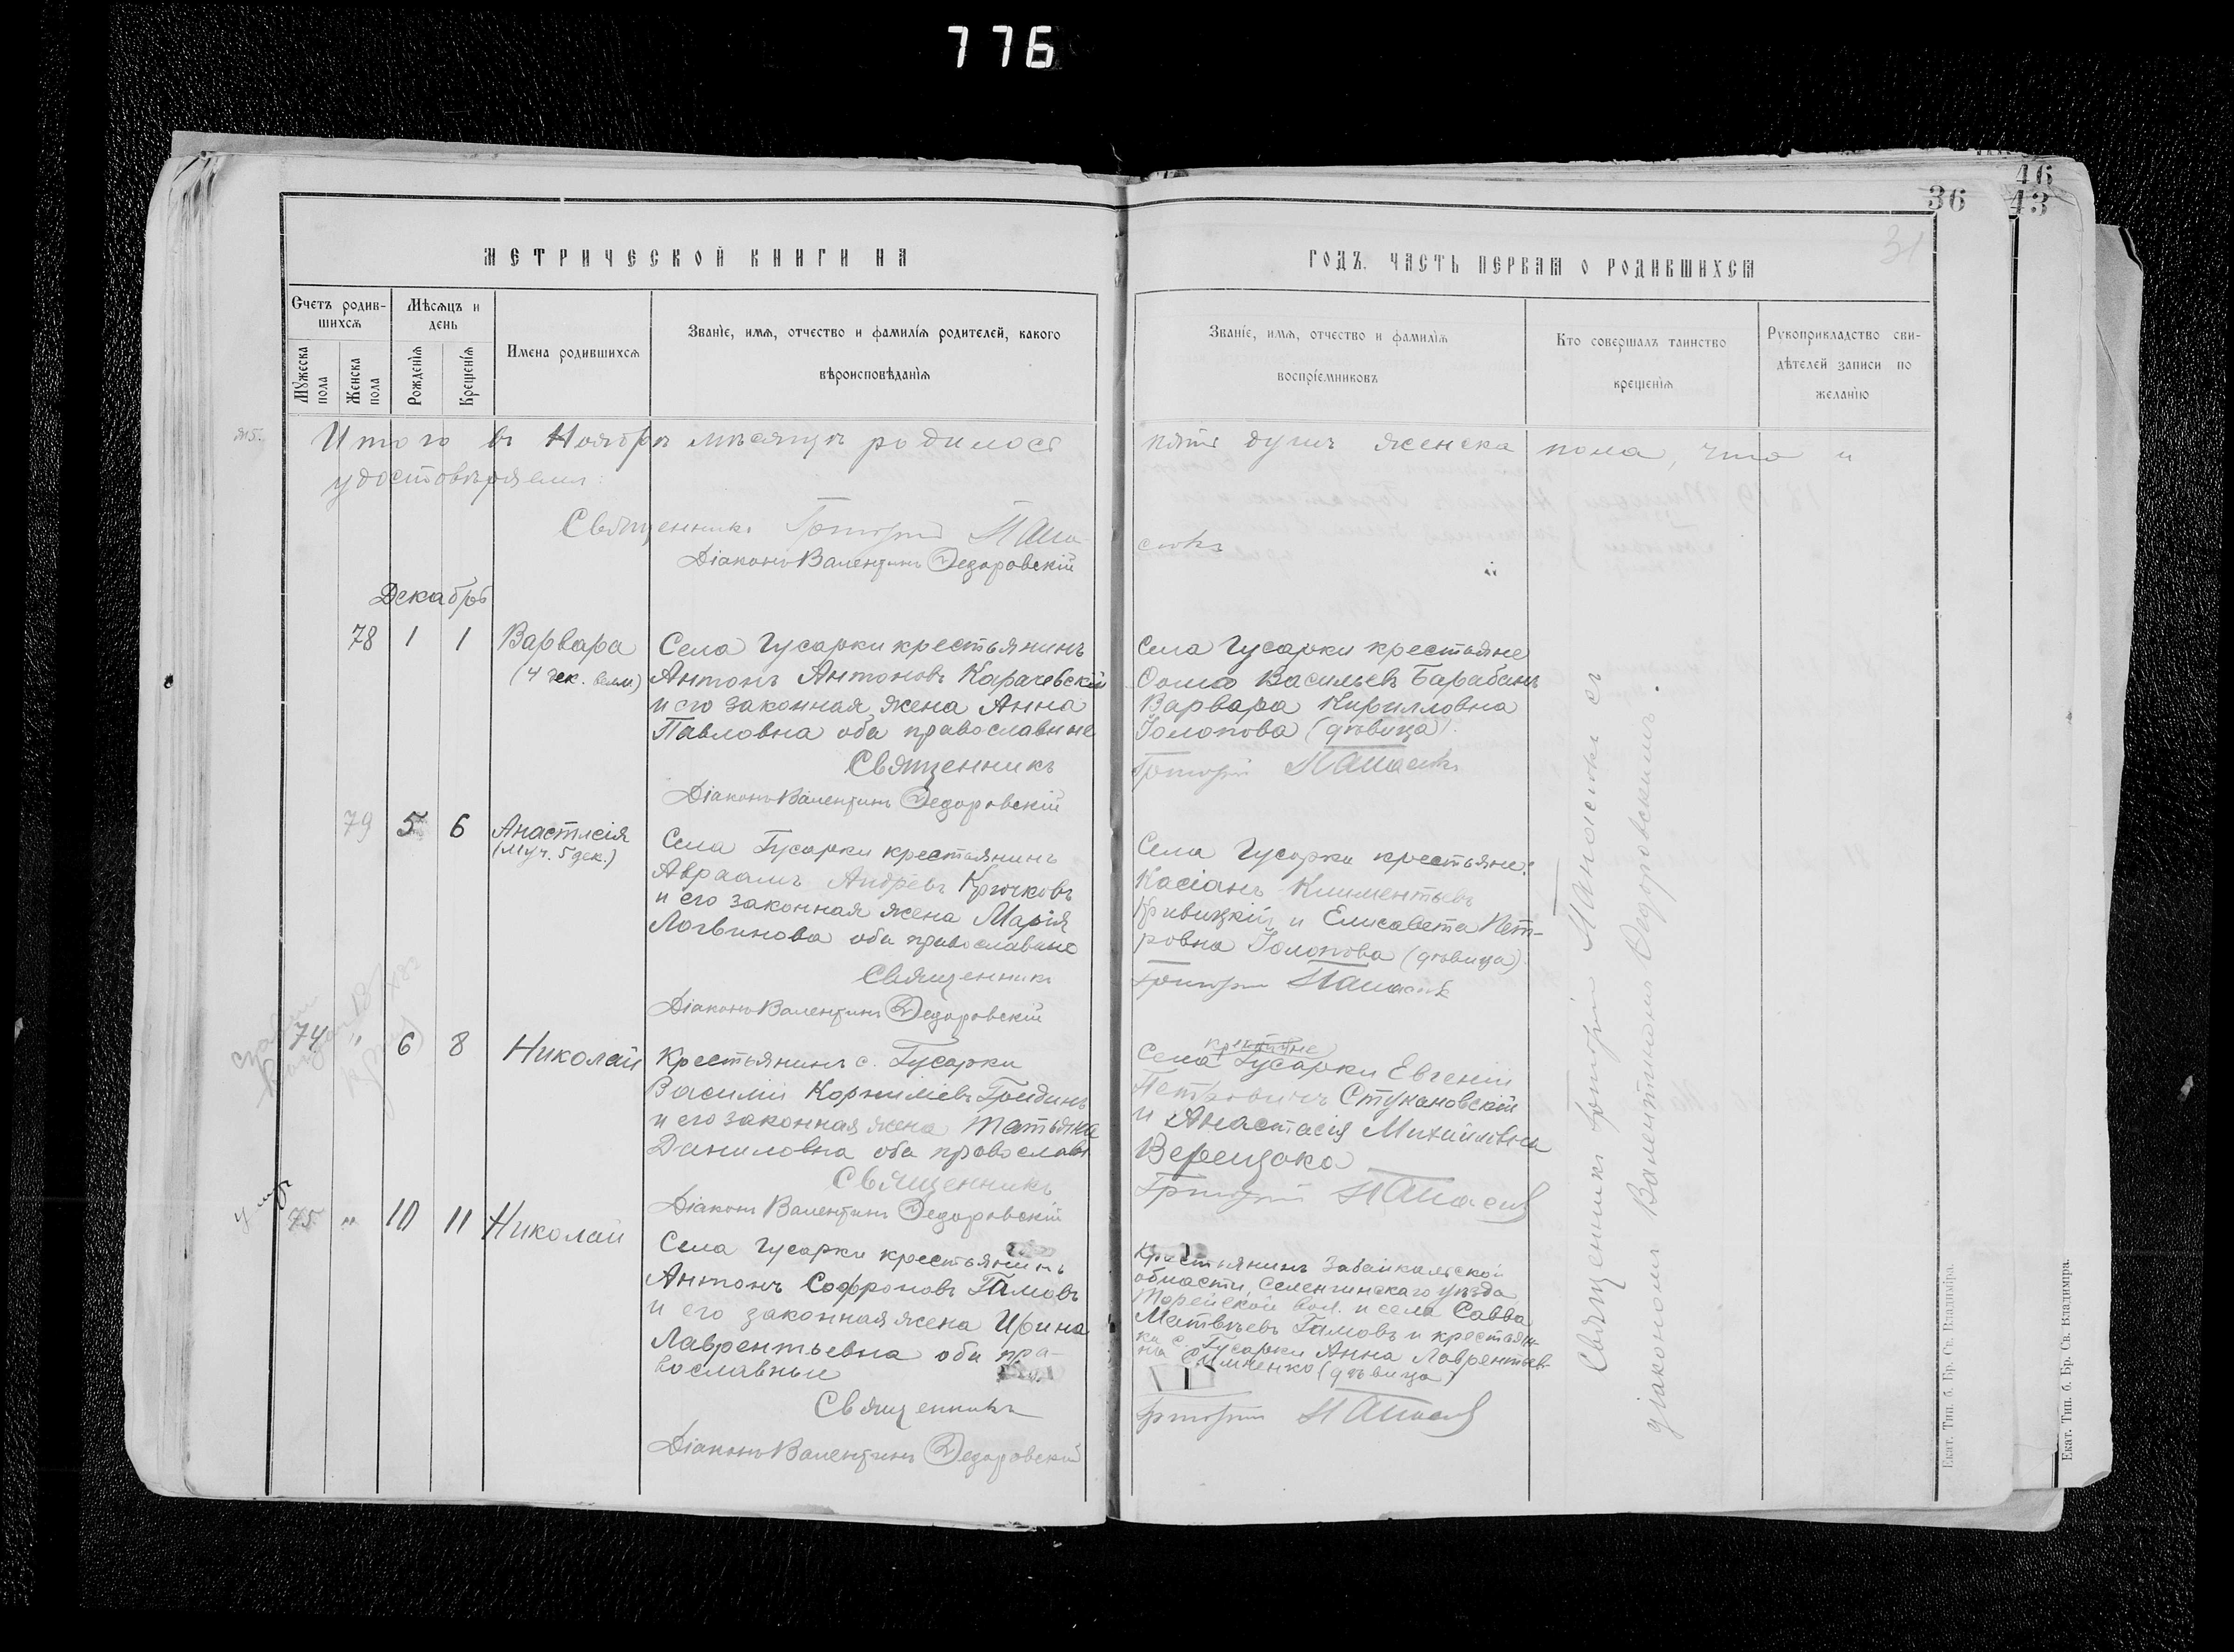 776
46
36 43
31
МЕТРИЧЕСКОЙ КНИГИ НА
ГОДЪ. ЧАСТЬ ПЕРВАЯ О РОДИВШИХСЯ
Счетъ родившихся
Мужеска пола
Женска пола
Мѣсяцъ и день
Рожденія
Крещенія
Имена родившихся
Званіе, имя, отчество и фамилія родителей, какого
вѣроисповѣданія
Званіе, имя, отчество и фамилія
воспріемниковъ
Кто совершалъ таинство
крещенія
Рукоприкладство сви-
дѣтелей записи по
желанію
Итого въ Ноябрѣ мѣсяцѣ родилось пять душъ женска пола, что и
удостовѣряемъ:
Священникъ Григорій
Діаконъ Валентинъ Ѳедоровскій
Декабрь
78 1 1 Варвара
(4 дек. вмч)
Села Гусарки крестьянинъ
Антонъ Антоновъ Карачевскій
и его законная жена Анна
Павловна оба православные
Священникъ
Діаконъ Валентинъ Ѳедоровскій
Села Гусарки крестьяне
Ѳома Васильевъ Барабанъ
Варвара Кирилловна
Голопова (дѣвица)
Григорій
79 5 6 Анастасія
(муч. 5 дек.)
Села Гусарки крестьянинъ
Авраамъ Андреевъ Крючковъ
и его законная жена Марія
Логвинова оба православные
Священникъ
Діаконъ Валентинъ Ѳедоровскій
Села Гусарки крестьяне:
Касіанъ Климентьевъ
Кривицкій и Елисавета Пет-
ровна Голопова (дѣвица)
Григорій
74 " 6 8 Николай
Крестьянинъ с. Гусарки
Василій Корниліевъ Гридинъ
и его законная жена Татьяна
Даниловна оба православ
Священникъ
Діаконъ Валентинъ Ѳедоровскій
крестьяне
Села Гусарки Евгеній
Петровичъ Стукановскій
и Анастасія Михайловна
Верещака
Григорій
умр
75 " 10 11 Николай
Села Гусарки крестьянинъ
Антонъ Софроновъ Гамовъ
и его законная жена Ирина
Лаврентьевна оба пра-
вославные
Священникъ
Діаконъ Валентинъ Ѳедоровскій
Крестьянинъ Забайкальской
области, Селенгинскаго уѣзда
Торейской вол. и села Савва
Матвѣевъ Гамовъ и крестьян-
ка с. Гусарки Анна Лаврентьев-
на (дѣвица)
Григорій
Священникъ Григорій съ
діакономъ Валентиномъ Ѳедоровскимъ.
Екат. Тип. б. Бр. Св. Владиміра.
Екат. Тип. б. Бр. Св. Владиміра.